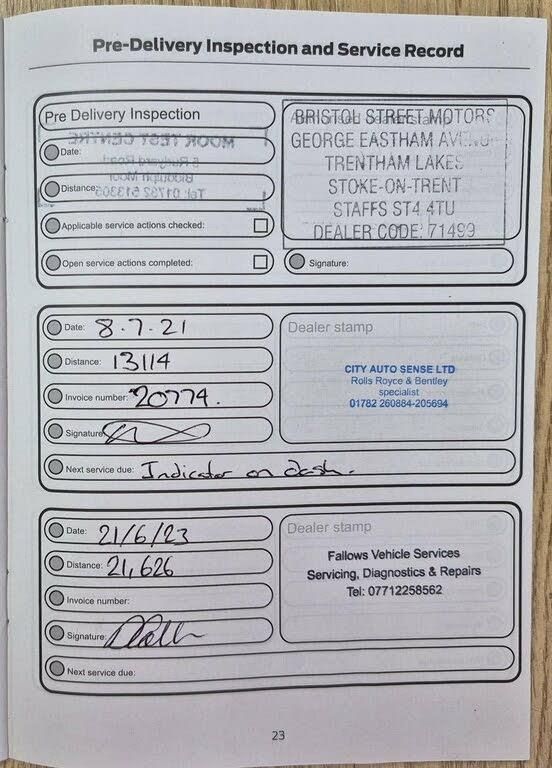 Pre-Delivery Inspection and Service Record
Pre Delivery Inspection
Date:
Distance:
Applicable service actions checked:
Open service actions completed:
BRISTOL STREET MOTORS
GEORGE EASTHAM AVENUE
TRENTHAM LAKES
STOKE-ON-TRENT
STAFFS ST4 4TU
DEALER CODE: 71499
Signature:
Date: 8.7.21
Distance: 13114
Invoice number: 20774.
Signature
Next service due: Indicator on dash.
Dealer stamp
CITY AUTO SENSE LTD
Rolls Royce & Bentley
specialist
01782 260884-205694
Date: 21/6/23
Distance: 21,626
Invoice number:
Signature:
Next service due:
Dealer stamp
Fallows Vehicle Services
Servicing, Diagnostics & Repairs
Tel: 07712258562
23